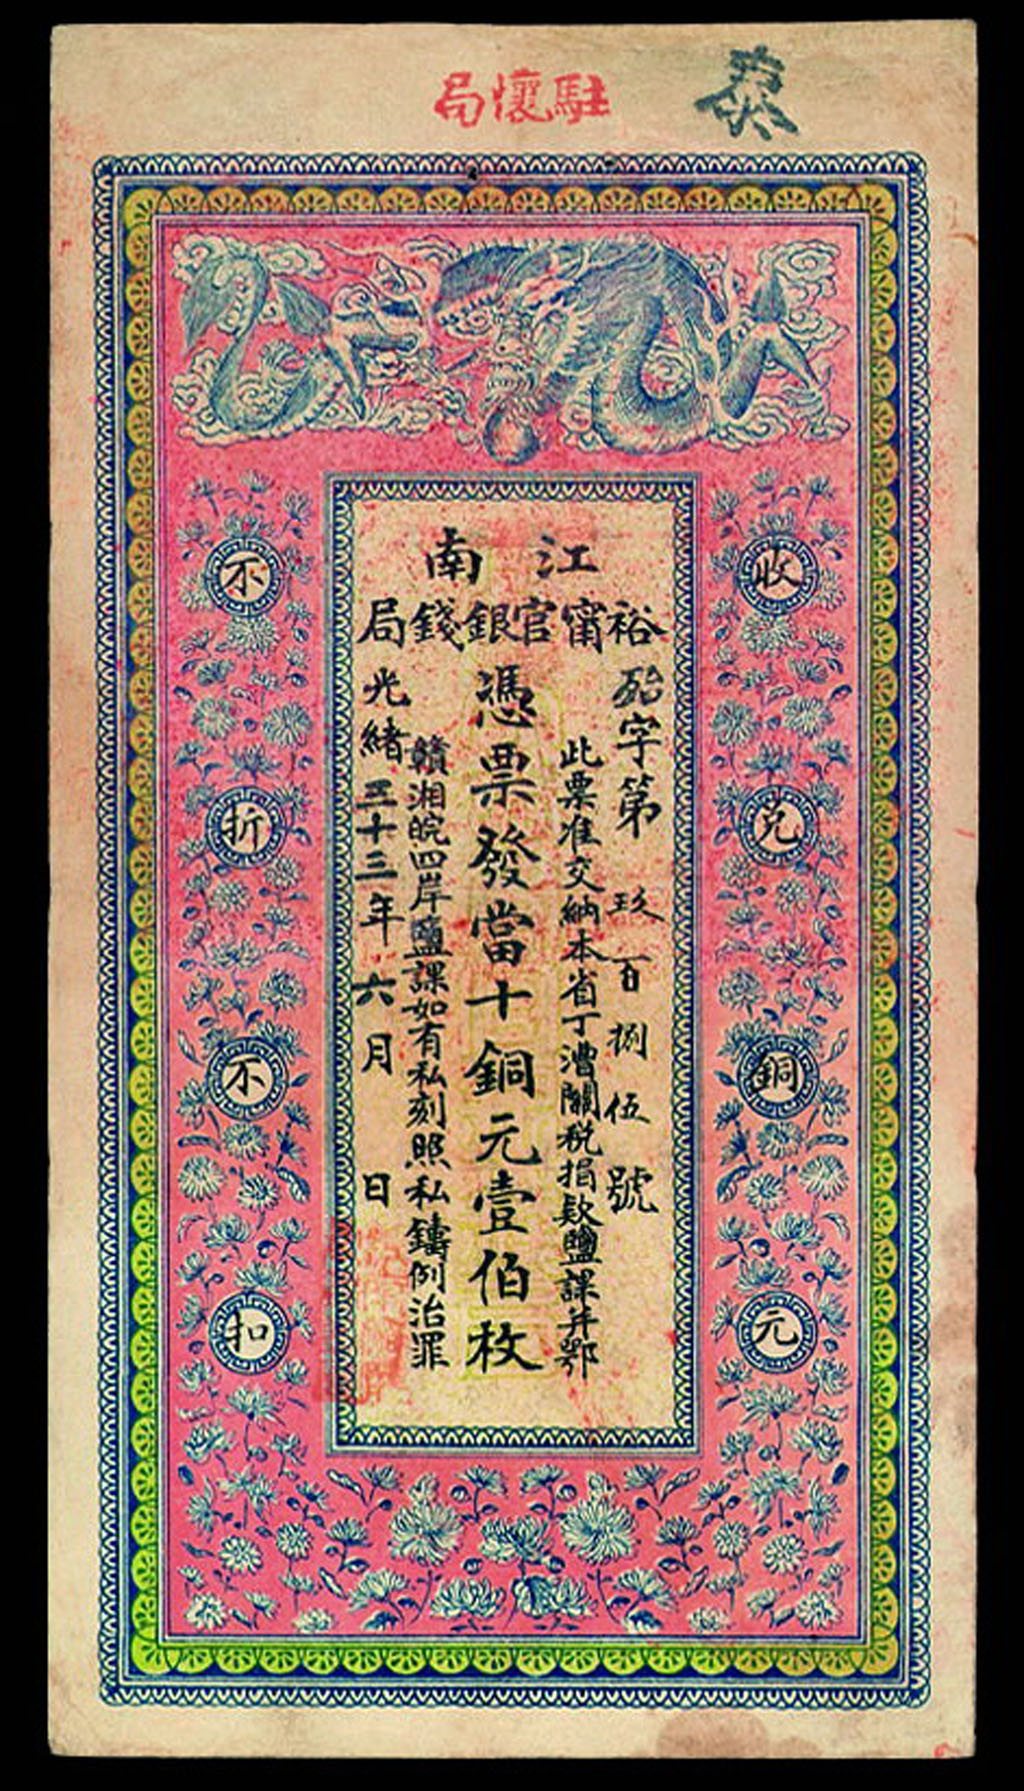 泰
駐懷局
江南
裕甯官銀錢局
字第玖百捌伍號
此票准交納本省丁漕關稅捐款鹽課并鄂
憑票發當十銅元壹伯枚
贛湘皖四岸鹽課如有私刻照私鑄例治罪
光緒三十三年六月 日
收兑銅元
不折不扣